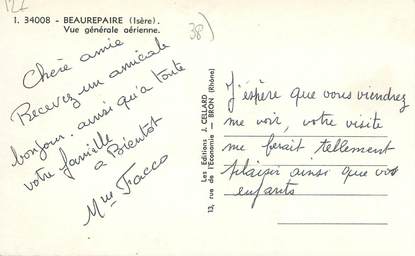 122
38)
I. 34008 - BEAUREPAIRE (Isère).
Vue générale aérienne.
Chère amie
Recevez un amicale
bonjour. ainsi qu'a toute
votre famille
a Bientôt
Mme Facco
Les Editions J. CELLARD
13, rue de l'Economie — BRON (Rhône)
J'éspère que vous viendrez
me voir, votre visite
me ferait tellement
plaisir ainsi que vos
enfants